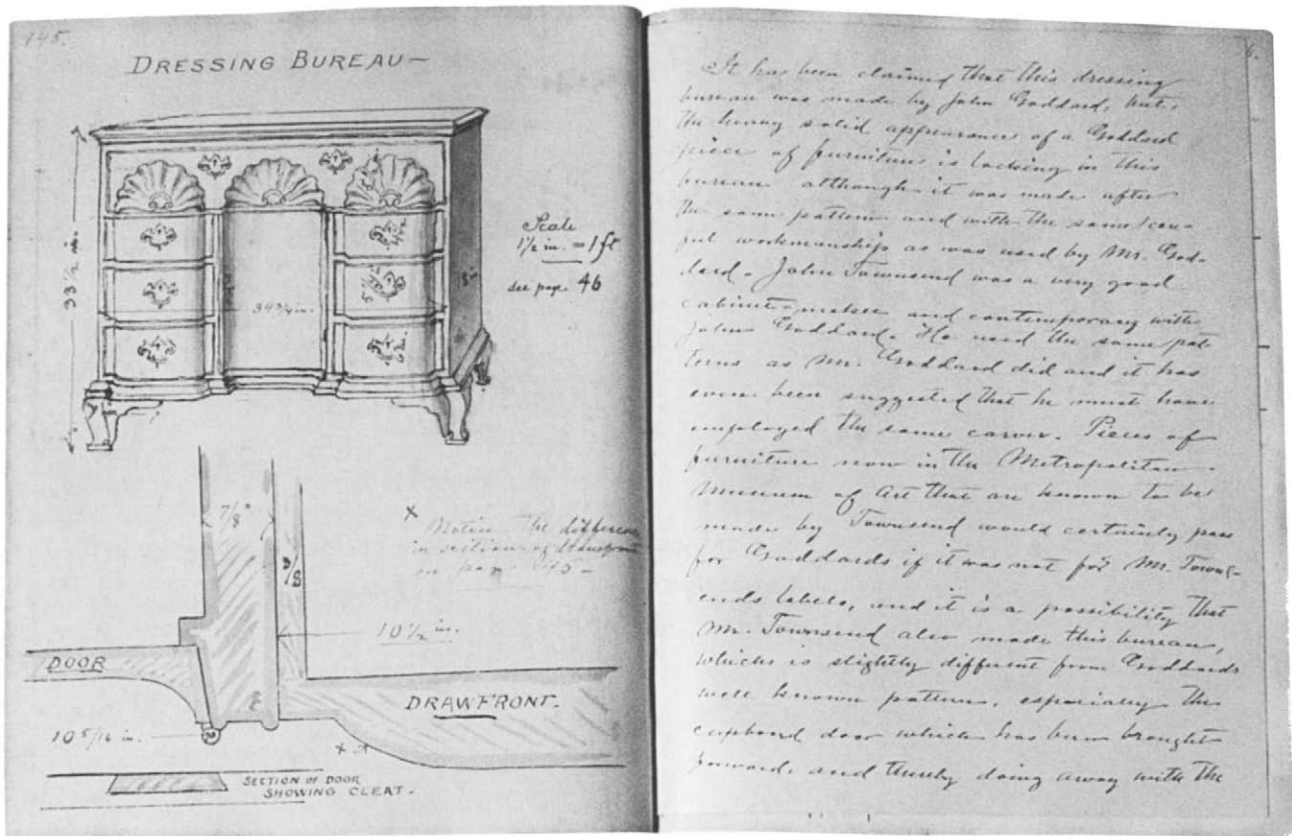 145.
DRESSING BUREAU-
33 1/2 in.
34 3/4 in.
18"
Scale
1 1/2 in. = 1 ft
see page 46
7/8"
x
Notice the difference
in sections of
on page 45-
10 1/2 in.
DOOR
DRAWFRONT.
10 5/16 in.
x x
SECTION OF DOOR
SHOWING CLEAT.
6.
It has been claimed that this dressing
bureau was made by John Goddard, but,
the heavy solid appearance of a Goddard
piece of furniture is lacking in this
bureau although it was made after
the same pattern and with the same
workmanship as was used by Mr. God-
dard. John Townsend was a very good
cabinet-maker and contemporary with
John Goddard. He used the same pat-
terns as Mr. Goddard did and it has
even been suggested that he must have
employed the same carver. Pieces of
furniture now in the Metropolitan
Museum of Art that are known to be
made by Townsend would certainly pass
for Goddards if it was not for Mr. Towns-
ends labels, and it is a possibility that
Mr. Townsend also made this bureau,
which is slightly different from Goddards
well known pattern, especially the
cupboard door which has been brought
forward, and thereby doing away with the